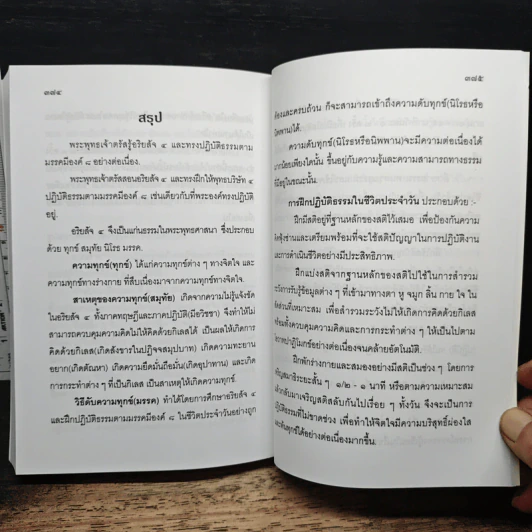 ๓๘๔
สรุป
พระพุทธเจ้าตรัสรู้อริยสัจ ๔ และทรงปฏิบัติธรรมตาม
มรรคมีองค์ ๘ อย่างต่อเนื่อง.
พระพุทธเจ้าตรัสสอนอริยสัจ ๔ และทรงฝึกให้พุทธบริษัท ๔
ปฏิบัติธรรมตามมรรคมีองค์ ๘ เช่นเดียวกับที่พระองค์ทรงปฏิบัติ
อยู่.
อริยสัจ ๔ จึงเป็นแก่นธรรมในพระพุทธศาสนา ซึ่งประกอบ
ด้วย ทุกข์ สมุทัย นิโรธ มรรค.
ความทุกข์(ทุกข์) ได้แก่ความทุกข์ต่าง ๆ ทางจิตใจ และ
ความทุกข์ทางร่างกาย ที่สืบเนื่องมาจากความทุกข์ทางจิตใจ.
สาเหตุของความทุกข์(สมุทัย) เกิดจากความไม่รู้แจ้งชัด
ในอริยสัจ ๔ ทั้งภาคทฤษฎีและภาคปฏิบัติ(มีอวิชชา) จึงทำให้ไม่
สามารถควบคุมความคิดไม่ให้คิดด้วยกิเลสได้ เป็นผลให้เกิดการ
คิดด้วยกิเลส(เกิดสังขารในปฏิจจสมุปบาท) เกิดความทะยาน
อยาก(เกิดตัณหา) เกิดความยึดมั่นถือมั่น(เกิดอุปาทาน) และเกิด
การกระทำต่าง ๆ ที่เป็นกิเลส เป็นสาเหตุให้เกิดความทุกข์.
วิธีดับความทุกข์(มรรค) ทำได้โดยการศึกษาอริยสัจ ๔
และฝึกปฏิบัติธรรมตามมรรคมีองค์ ๘ ในชีวิตประจำวันอย่างถูก
๓๘๕
ต้องและครบถ้วน ก็จะสามารถเข้าถึงความดับทุกข์(นิโรธหรือ
นิพพาน)ได้.
ความดับทุกข์(นิโรธหรือนิพพาน)จะมีความต่อเนื่องได้
มากน้อยเพียงใดนั้น ขึ้นอยู่กับความรู้และความสามารถทางธรรม
ที่มีอยู่ในขณะนั้น.
การฝึกปฏิบัติธรรมในชีวิตประจำวัน ประกอบด้วย :-
ฝึกมีสติอยู่ที่ฐานหลักของสติไว้เสมอ เพื่อป้องกันความ
คิดฟุ้งซ่านและเตรียมพร้อมที่จะใช้สติปัญญาในการปฏิบัติงาน
และการดำเนินชีวิตอย่างมีประสิทธิภาพ.
ฝึกแบ่งสติจากฐานหลักของสติไปใช้ในการสำรวม
ระวังการรับรู้ข้อมูลต่าง ๆ ที่เข้ามาทางตา หู จมูก ลิ้น กาย ใจ ใน
สัดส่วนที่เหมาะสม เพื่อสำรวมระวังไม่ให้เกิดการคิดด้วยกิเลส
พร้อมทั้งควบคุมความคิดและการกระทำต่าง ๆ ให้เป็นไปตาม
โอวาทปาฏิโมกข์อย่างต่อเนื่องจนคล้ายอัตโนมัติ.
ฝึกพักร่างกายและสมองอย่างมีสติเป็นช่วง ๆ โดยการ
เจริญสมาธิระยะสั้น ๆ ๑/๒ - ๑ นาที หรือตามความเหมาะสม
แล้วกลับมาเจริญสติสลับกันไปเรื่อย ๆ ทั้งวัน จึงจะเป็นการ
ปฏิบัติธรรมที่ไม่ขาดช่วง เพื่อทำให้จิตใจมีความบริสุทธิ์ผ่องใส
และดับทุกข์ได้อย่างต่อเนื่องมากขึ้น.